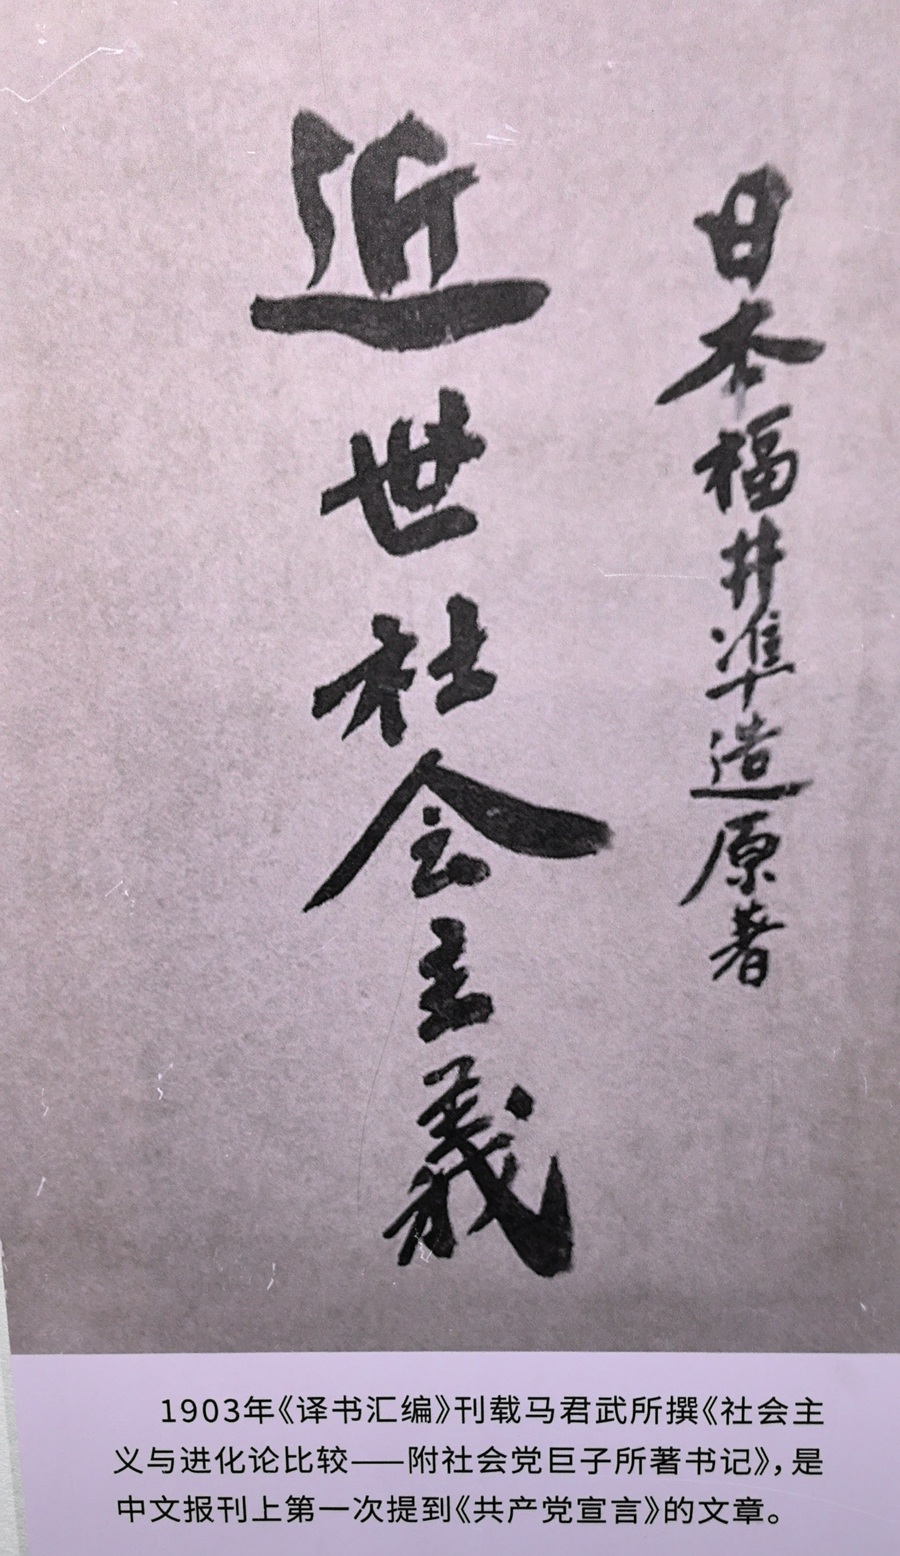 日本福井準造原著
近世社会主義
1903年《译书汇编》刊载马君武所撰《社会主
义与进化论比较——附社会党巨子所著书记》，是
中文报刊上第一次提到《共产党宣言》的文章。